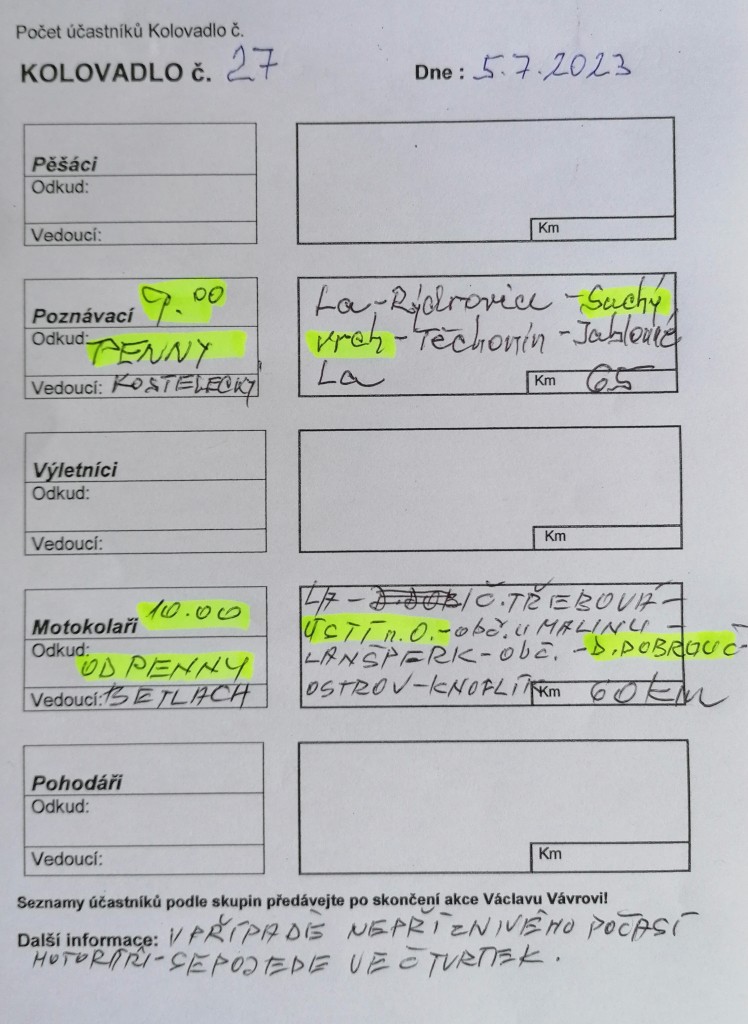 Počet účastníků Kolovadlo č.
KOLOVADLO č. 27 Dne : 5.7.2023
Pěšáci
Odkud:
Vedoucí:
Km
Poznávací 9.00
Odkud: PENNY
Vedoucí: KOSTELECKÝ
La - Rýdrovice - Suchý
vrch - Těchonín - Jablonné
La
Km 65
Výletníci
Odkud:
Vedoucí:
Km
Motokolaři 10.00
Odkud: OD PENNY
Vedoucí: BETLACH
LA - Č.TŘEBOVÁ -
ÚSTÍ n.O. - obč. u MALINU -
LANŠPERK - obč. - D.DOBROUČ -
OSTROV - KNOFLÍK
Km 60 KM
Pohodáři
Odkud:
Vedoucí:
Km
Seznamy účastníků podle skupin předávejte po skončení akce Václavu Vávrovi!
Další informace: V PŘÍPADĚ NEPŘÍZNIVÉHO POČASÍ
SE POJEDE VE ČTVRTEK.